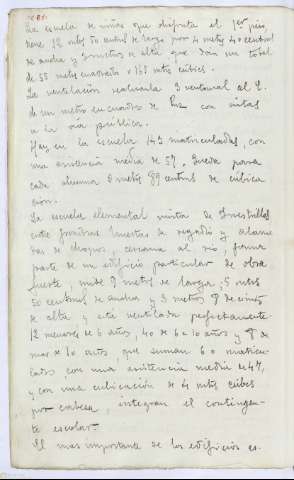 La escuela de niñas que disfruta el 1er piso,
tiene 12 mts 50 centms de largo por 4 metrs 40 centms
de ancho y 3 metros de alto que dan un total
de 55 metrs cuadrados o 165 mts cúbics.
La ventilación realizada 3 ventanas al E.
de un metro en cuadro de luz con vistas
a la vía pública.
Hay en la escuela 143 matriculadas, con
una asistencia media de 59. Queda para
cada alumna 2 metrs 89 centms de cubica-
ción.
La escuela elemental mixta de
entre frondosas huertas de regadío y alame-
das de chopos, cercana al río, forma
parte de un edificio particular de obra
fuerte; mide 9 metrs de largo; 5 mts
50 centms de ancho y 3 metros de
de alto y está ventilada perfectamente
12 menores de 6 años, 40 de 6 a 10 años y 8 de
mas de 10 años que suman 60 matricu-
lados con una asistencia media de 47,
y con una cubicación de 4 mts cúbcs
por cabeza, integran el contingen-
te escolar.
El mas importante de los edificios es-